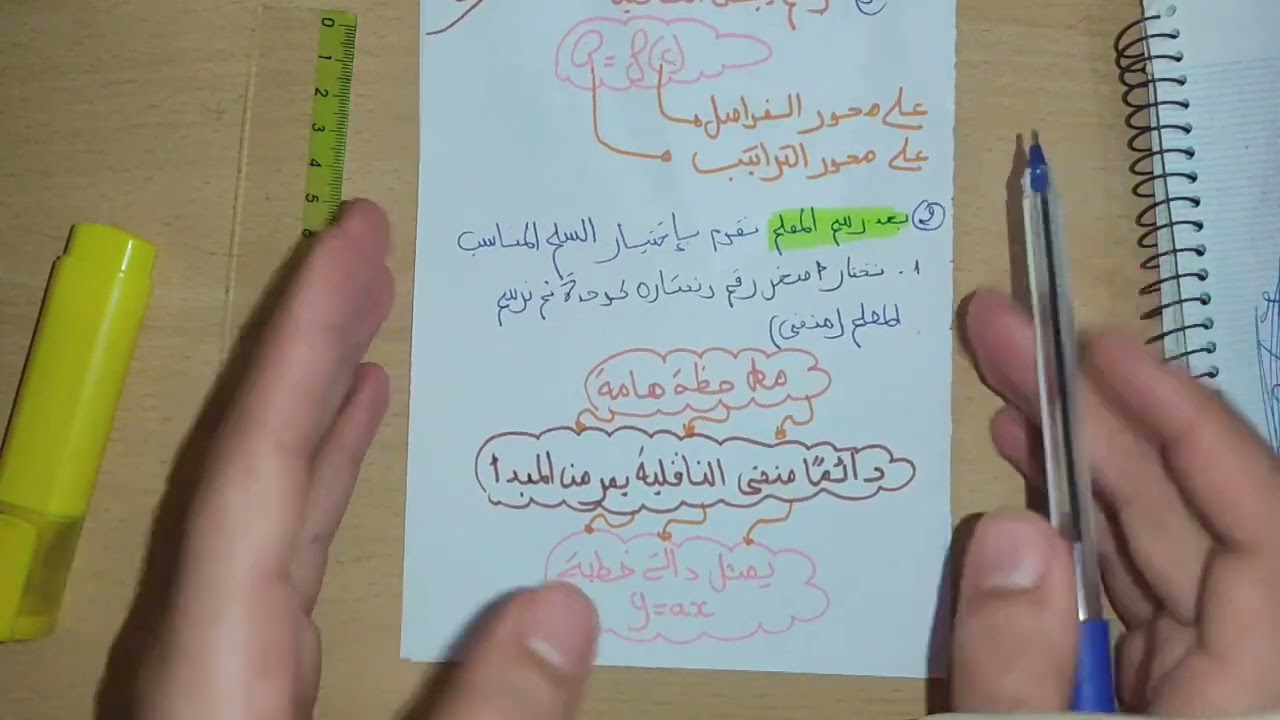 σ = f(c)
على محور الفواصل
على محور التراتيب
② بعد رسم المعلم نقوم بإختيار السلم المناسب
1. نختار أصغر رقم ونختاره كوحدة ثم نرسم
المعلم (منحنى)
ملاحظة هامة
دائمًا منحنى الناقلية يمر من المبدأ
يمثل دالة خطية
y=ax
0 1 2 3 4 5